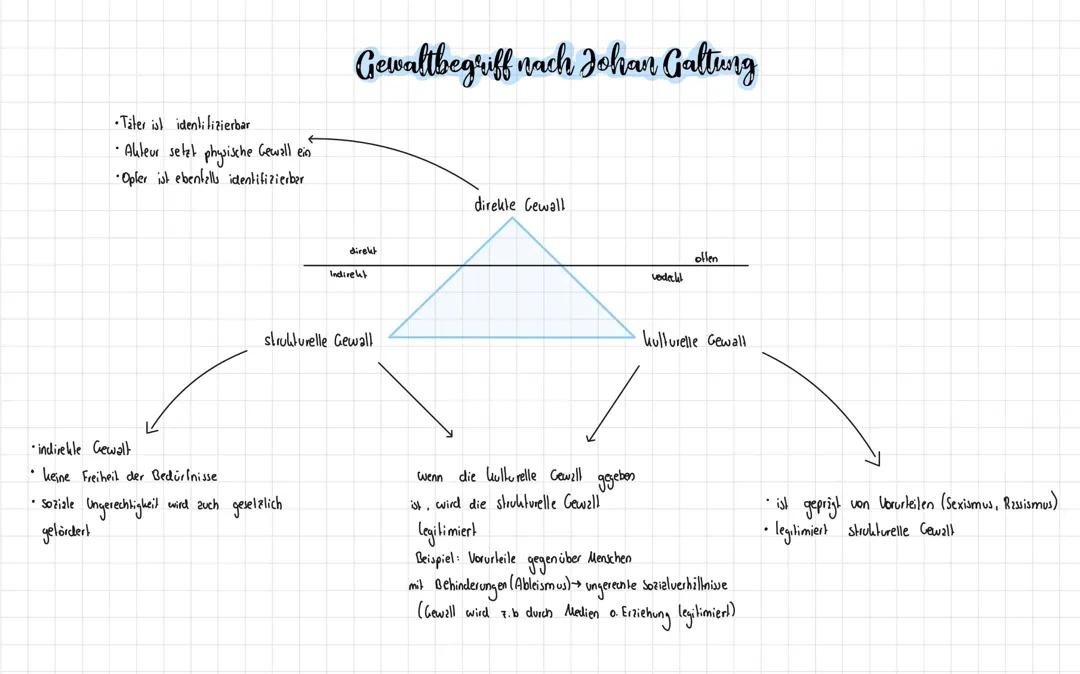 Gewaltbegriff nach Johan Galtung
• Täter ist identifizierbar
• Akteur setzt physische Gewalt ein
• Opfer ist ebenfalls identifizierbar
direkte Gewalt
direkt
offen
Indirekt
verdeckt
strukturelle Gewalt
kulturelle Gewalt
• indirekte Gewalt
• keine Freiheit der Bedürfnisse
• Soziale Ungerechtigkeit wird auch gesetzlich
gefördert
wenn die kulturelle Gewalt gegeben
ist, wird die strukturelle Gewalt
legitimiert
Beispiel: Vorurteile gegenüber Menschen
mit Behinderungen (Ableismus) → ungerechte Sozialverhältnisse
(Gewalt wird z.b durch Medien o. Erziehung legitimiert)
• ist geprägt von Vorurteilen (Sexismus, Rassismus)
• legitimiert strukturelle Gewalt